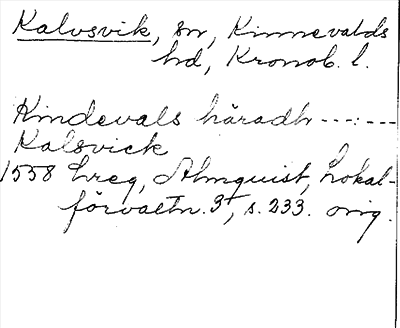 Kalvsvik, sn, Kinnevalds
hd, Kronob. l.
Kindevals häradh ---:---
Kalsvick
1558 Lreg, Almquist, Lokal-
förvaltn. 3, s. 233. orig.